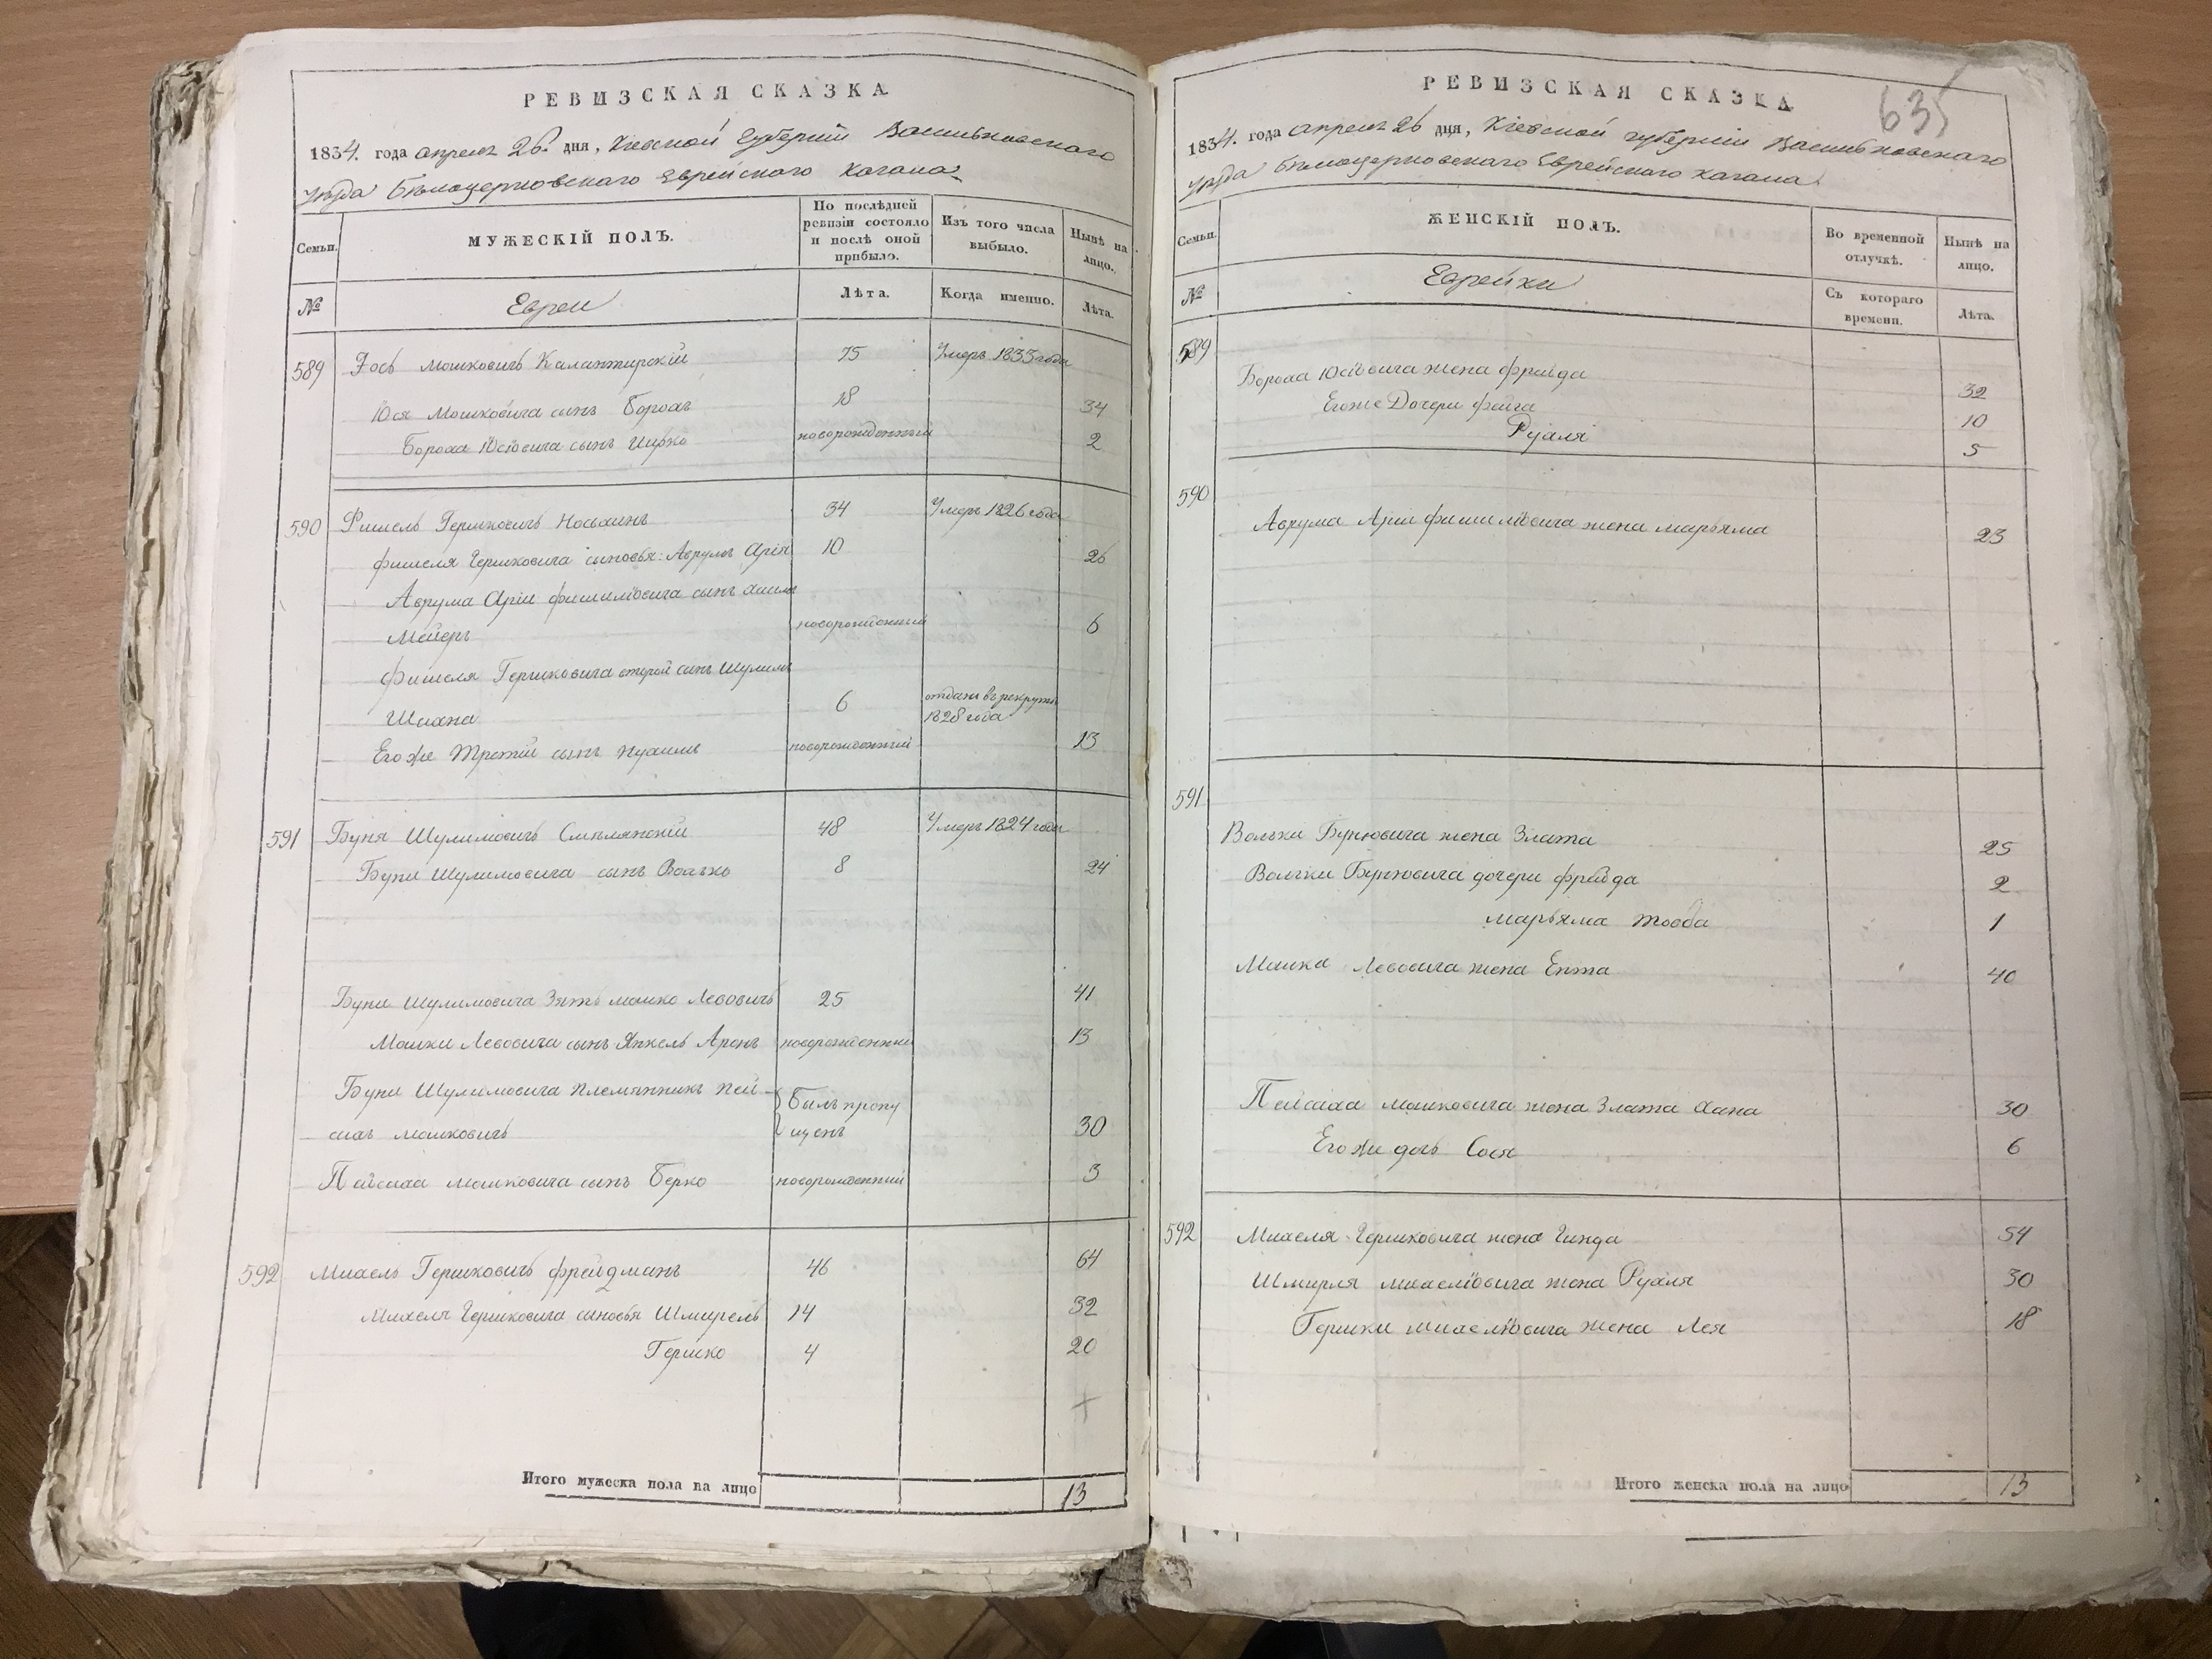 РЕВИЗСКАЯ СКАЗКА
1834. года апреля 26. дня, Кіевской Губерніи Васильковскаго
уѣзда Бѣлоцерковскаго Еврейского Кагала
Семьи. МУЖЕСКІЙ ПОЛЪ. По послѣдней ревизіи состояло и послѣ оной прибыло. Изъ того числа выбыло. Нынѣ на лицо.
№ Евреи Лѣта. Когда именно. Лѣта.
589 Іось Мошковичъ Калантирскій 75 Умеръ 1833 года
Юся Мошковича сынъ Борохъ 18 34
Бороха Юсіовича сынъ Ицько новорожденный 2
590 Фишель Гершковичъ 34 Умеръ 1826 года
фишеля Гершковича сыновья: Аврумъ Арія 10 26
Аврума Аріи фишиліовича сынъ Хаимъ
Мейеръ новорожденный 6
фишеля Гершковича второй сынъ Шулимъ
Шахна 6 отданъ въ рекруты
1828 года
Его же Третій сынъ Нухимъ новорожденный 13
591 Буня Шулимовичъ Смѣлянскій 48 Умеръ 1824 года
Буни Шулимовича сынъ Волько 8 24
Буни Шулимовича Зять мошко Лейбовичъ 25 41
Мошки Лейбовича сынъ Янкель Аронъ новорожденный 13
Буни Шулимовича племянникъ Пей-
сахъ мошковичъ Былъ пропу
щенъ 30
Пейсаха мошковича сынъ Берко новорожденный 3
592 Михель Гершковичъ фрейдманъ 46 64
Михеля Гершковича сыновья Шмирель 14 32
Гершко 4 20
Итого мужеска пола на лицо 13
635
РЕВИЗСКАЯ СКАЗКА
1834. года апреля 26 дня, Кіевской губерніи Васильковскаго
уѣзда Бѣлоцерковскаго Еврейского Кагала
Семьи. ЖЕНСКІЙ ПОЛЪ. Во временной отлучкѣ. Нынѣ на лицо.
№ Еврейки Съ котораго времени. Лѣта.
589
Бороха Юсіовича жена фрейда 32
Его же Дочери фейга 10
Рухля 5
590
Аврума Аріи фишиліовича жена марьяма 23
591
Вольки Бунювича жена Злата 25
Вольки Бунювича дочери фрейда 2
марьяма товба 1
Мошки Лейбовича жена Ента 40
Пейсаха мошковича жена Злата Хана 30
Его же дочь Сося 6
592 Михеля Гершковича жена Гинда 54
Шмирля михеліовича жена Рухля 30
Гершки михеліовича жена Лея 18
Итого женска пола на лицо 13